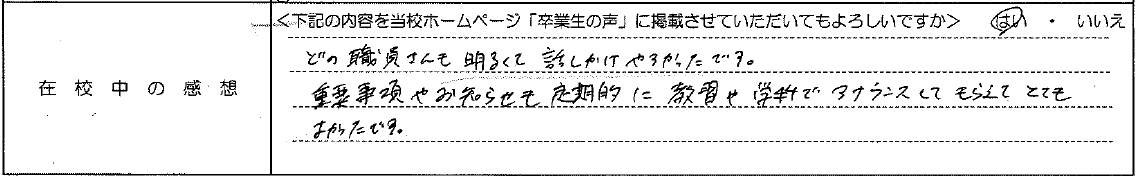 <下記の内容を当校ホームページ「卒業生の声」に掲載させていただいてもよろしいですか> はい ・ いいえ
在校中の感想
どの職員さんも明るくて話しかけやすかったです。
重要事項やお知らせも定期的に教習や学科でアナウンスしてもらえてとても
よかったです。